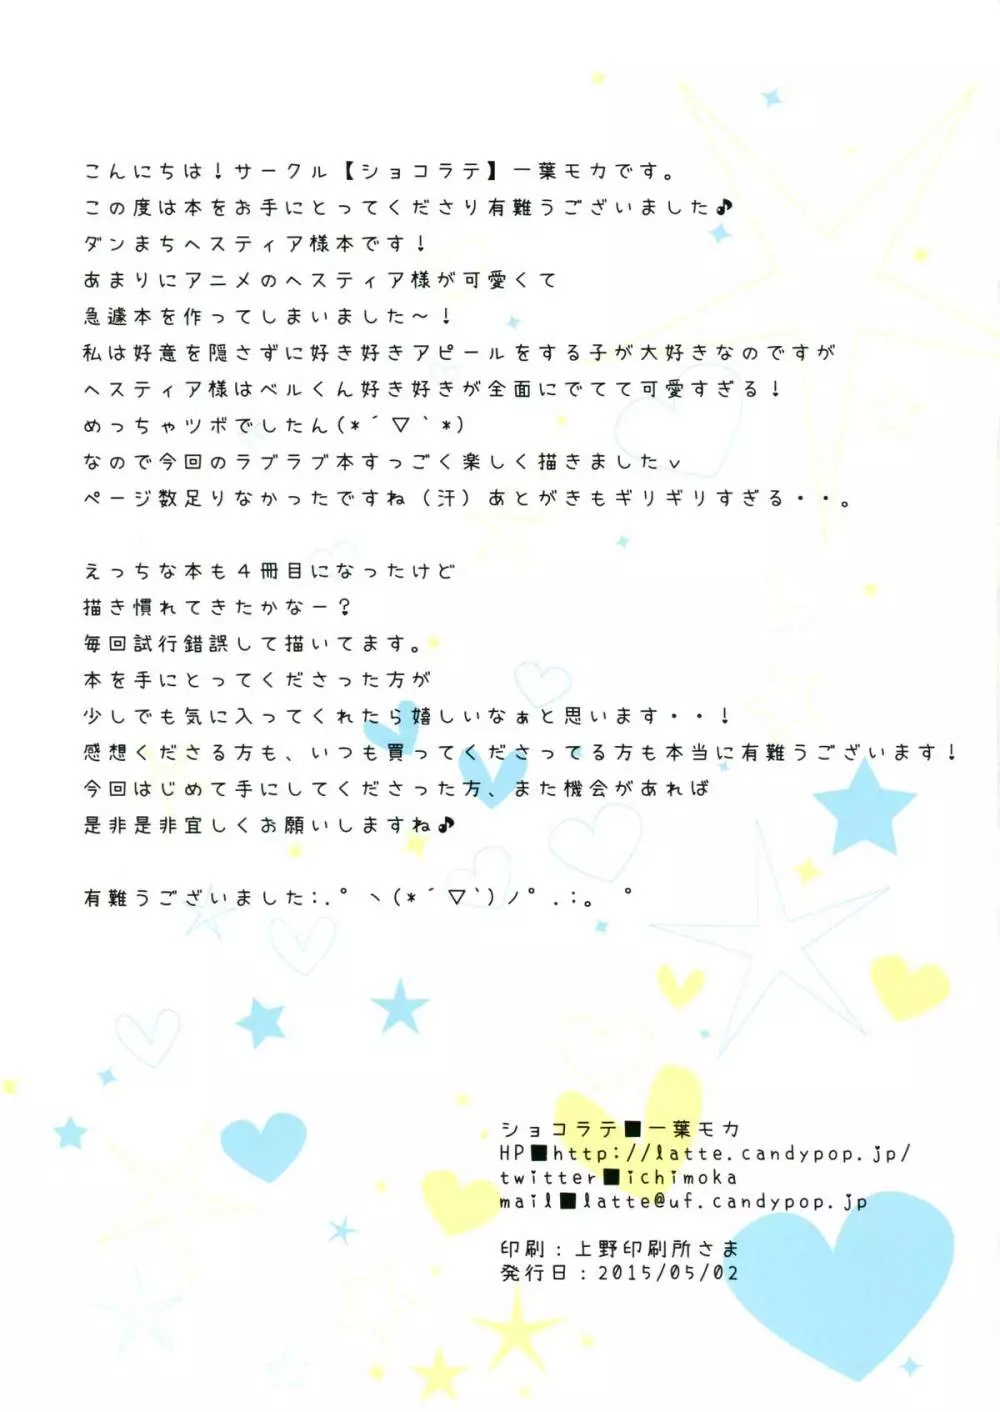 こんにちは！サークル【ショコラテ】一葉モカです。
この度は本をお手にとってくださり有難うございました♪
ダンまちヘスティア様本です！
あまりにアニメのヘスティア様が可愛くて
急遽本を作ってしまいました～！
私は好意を隠さずに好き好きアピールをする子が大好きなのですが
ヘスティア様はベルくん好き好きが全面にでてて可愛すぎる！
めっちゃツボでしたん(*´▽｀*)
なので今回のラブラブ本すっごく楽しく描きましたv
ページ数足りなかったですね（汗）あとがきもギリギリすぎる・・。
えっちな本も４冊目になったけど
描き慣れてきたかなー？
毎回試行錯誤して描いてます。
本を手にとってくださった方が
少しでも気に入ってくれたら嬉しいなぁと思います・・！
感想くださる方も、いつも買ってくださってる方も本当に有難うございます！
今回はじめて手にしてくださった方、また機会があれば
是非是非宜しくお願いしますね♪
有難うございました:.ﾟヽ(*´▽`)ﾉﾟ.:。ﾟ
ショコラテ■一葉モカ
HP■http://latte.candypop.jp/
twitter■ichimoka
mail■latte@uf.candypop.jp
印刷：上野印刷所さま
発行日：2015/05/02